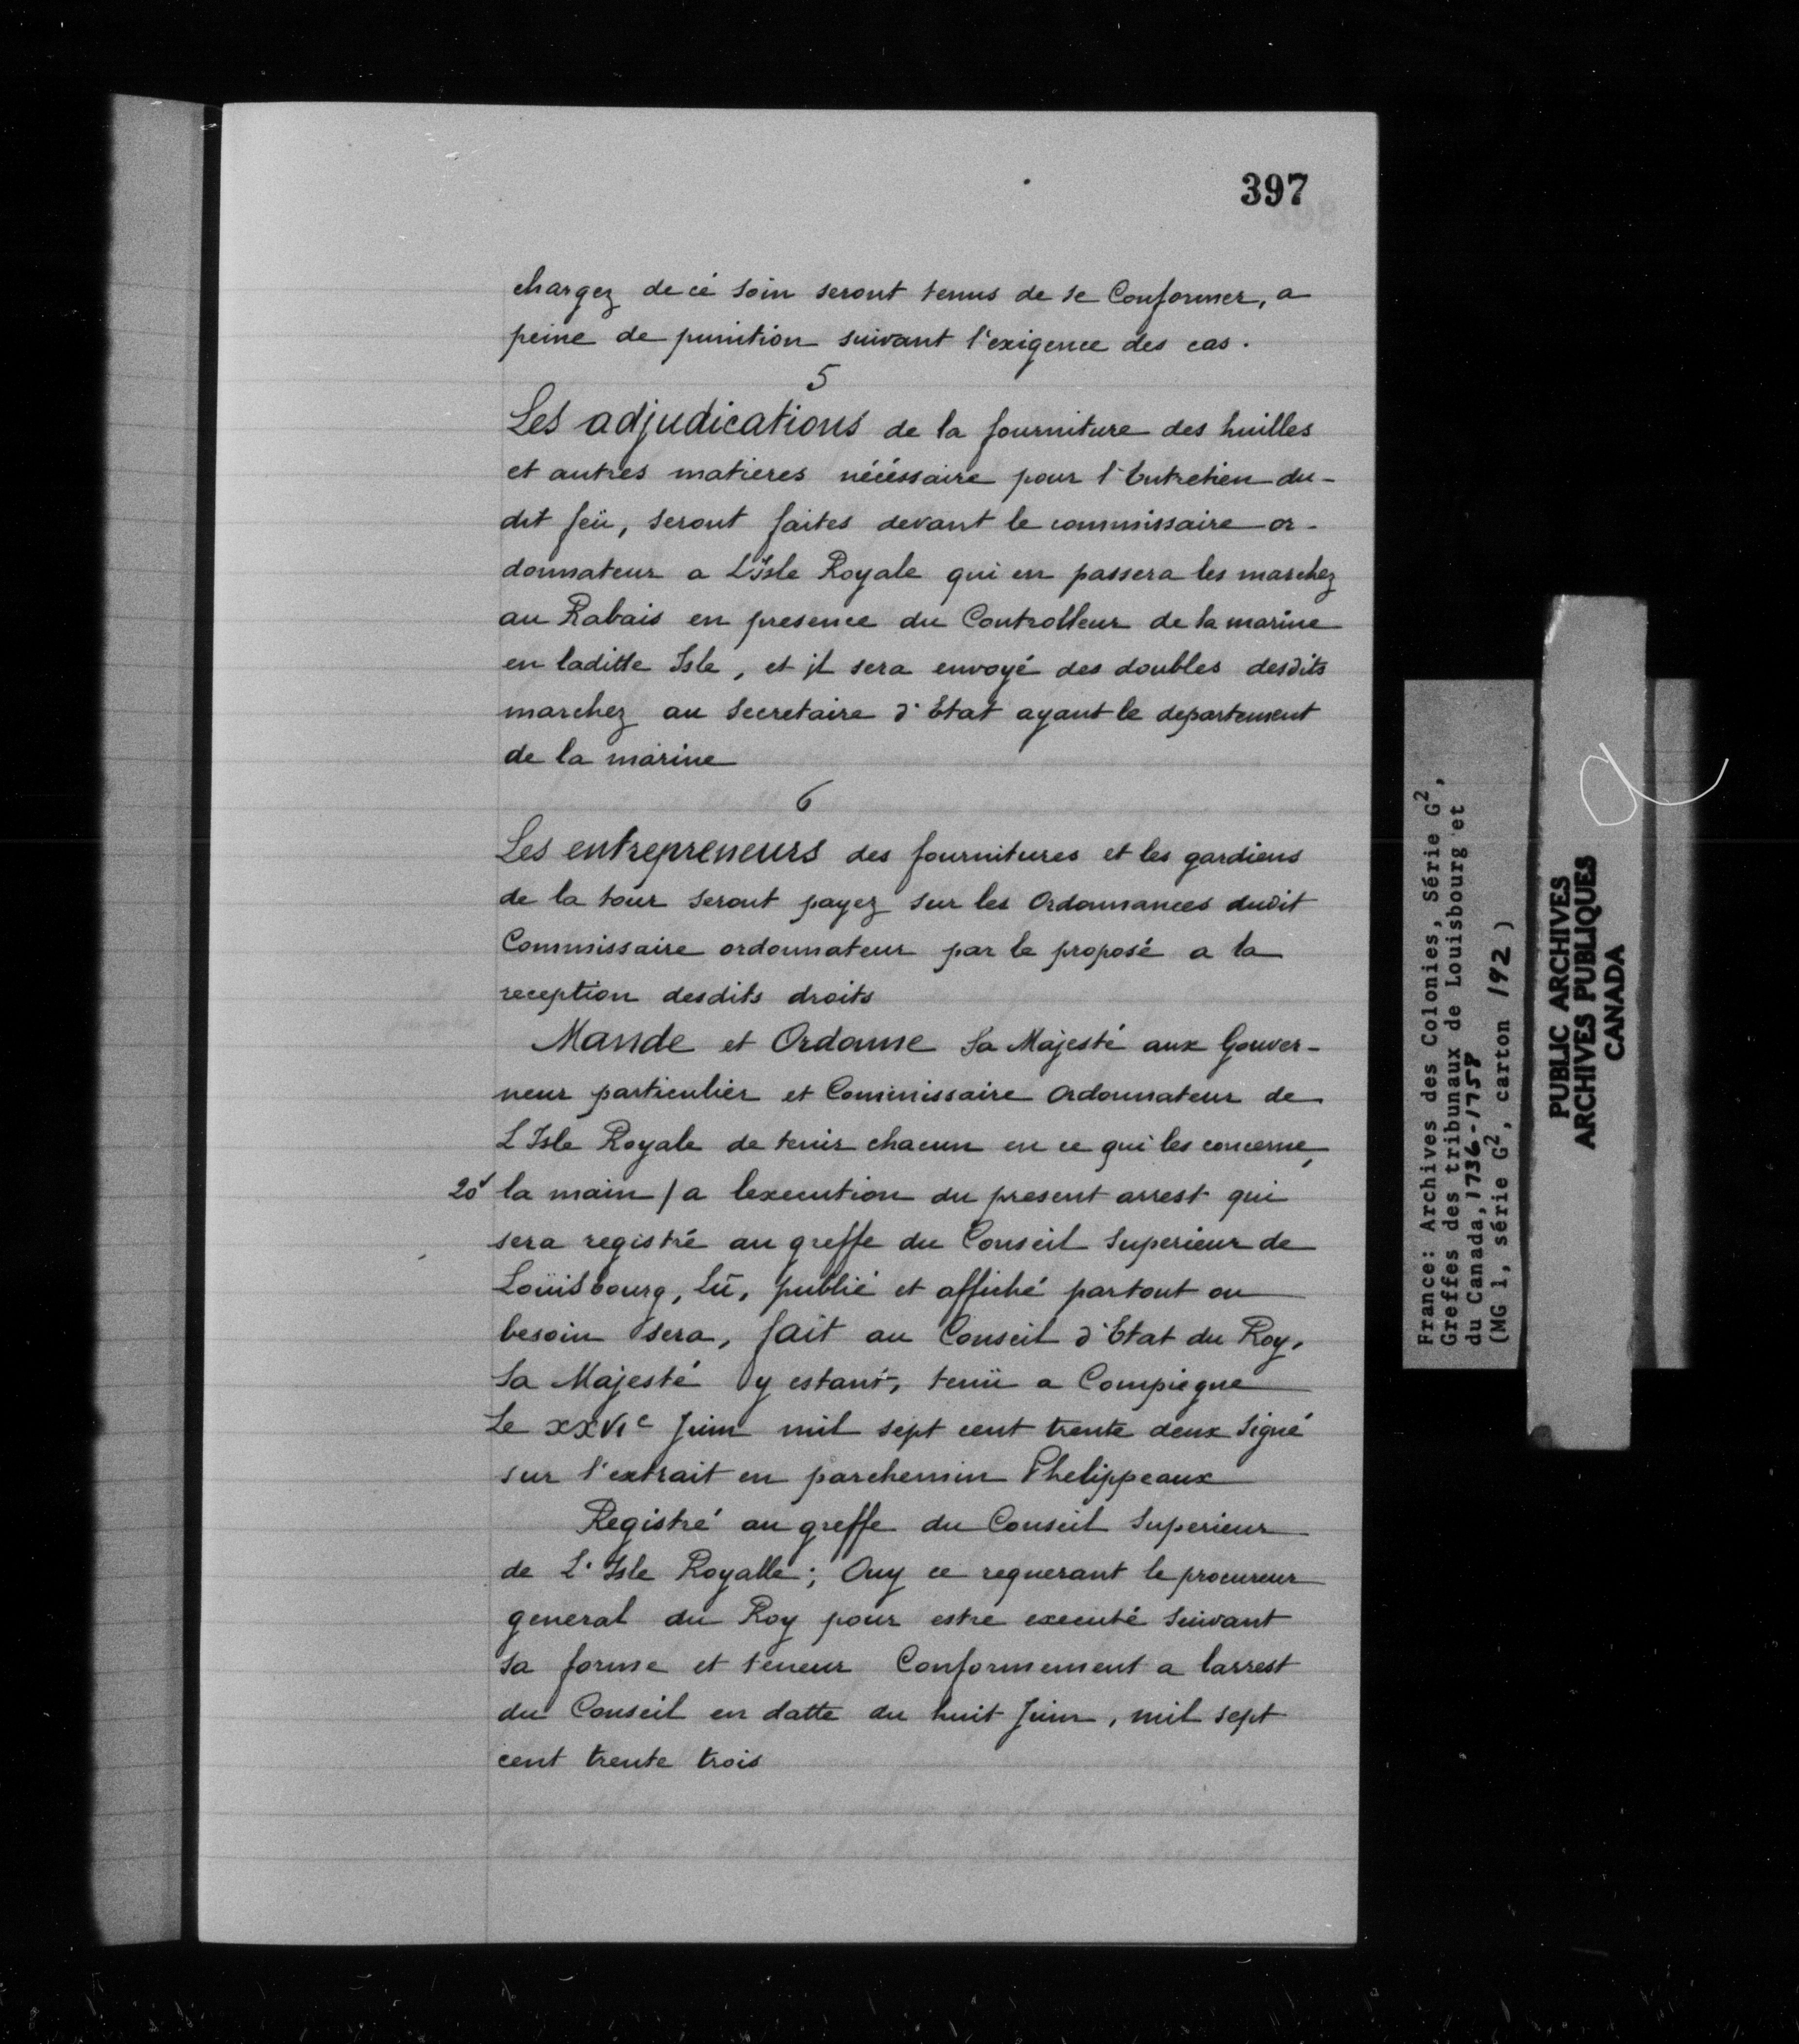 397
chargez de cé soin seront tenus de se Conformer, a
peine de punition suivant l'exigence des cas.
5
Les adjudications de la fourniture des huilles
et autres matieres nécéssaire pour l'Entretien du-
dit feü, seront faites devant le commissaire or-
donnateur a L'Isle Royale qui en passera les marchez
au Rabais en presence du Controlleur de la marine
en laditte Isle, et il sera envoyé des doubles desdits
marchez au Secretaire d'Etat ayant le departement
de la marine
6
Les entrepreneurs des fournitures et les gardiens
de la tour seront payez sur les Ordonnances dudit
Commissaire ordonnateur par le proposé a la
reception desdits droits
Mande et Ordonne Sa Majesté aux Gouver-
neur particulier et Commissaire Ordonnateur de
L'Isle Royale de tenir chacun en ce qui les concerne,
la main / a lexecution du present arrest qui
sera registré au greffe du Conseil Superieur de
Loüisbourg, Lü, publié et affiché partout ou
besoin sera, fait au Conseil d'Etat du Roy,
Sa Majesté y estant, tenü a Compiegne
Le XXVIe Juin mil sept cent trente deux Signé
sur l'extrait en parchemin Phelippeaux
Registré au greffe du Conseil Superieur
de L'Isle Royalle; Ouy ce requerant le procureur
general du Roy pour estre executé suivant
sa forme et teneur Conformement a larrest
du Conseil en datte du huit Juin, mil sept
cent trente trois
France: Archives des Colonies, Série G2,
Greffes des tribunaux de Louisbourg et
du Canada, 1736-1758
(MG 1, série G2, carton 192)
PUBLIC ARCHIVES
ARCHIVES PUBLIQUES
CANADA